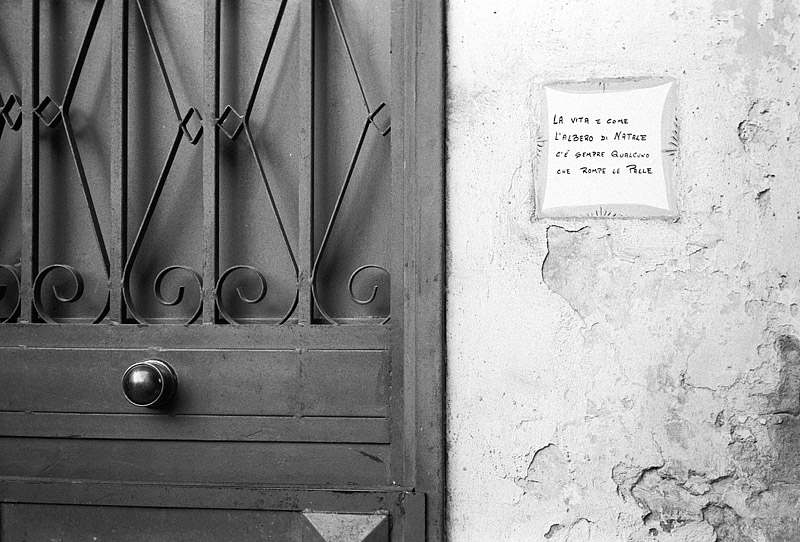 LA VITA E COME
L'ALBERO DI NATALE
C'É SEMPRE QUALCUNO
CHE ROMPE LE PALLE